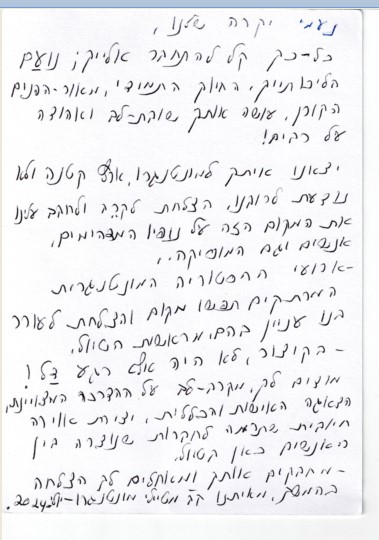 נעמי יקרה שלנו,
כל-כך קל להתחבר אלייך; נועם
הליכותייך, החיוך התמידי, מאור-הפנים
הקורן, עושה אותך שובת-לב ואהודה
על רבים!
יצאנו איתך למונטנגרו, ארץ קטנה ולא
נודעת לרובנו. הצלחת לקרב ולחבב עלינו
את המקום הזה על נופיו המדהימים,
אנשים וגם המוסיקה..
-ארועי ההסטוריה המונטנגרית
המרתקים תפסו מקום והצלחת לעורר
בנו עניין בהם, מראשית הטיול.
-בקיצור, לא היה אף רגע דל!
מודים לך, מקרב-לב על ההדרכה המצויינת,
הדאגה האישית והכללית, יצירת אוירה
חיובית שתרמה לחברות שנוצרה בין
האנשים כאן בטיול.
-מחבקים אותך ומאחלים לך הצלחה
בהמשך, מאיתנו מטיילי מונטנגרו-יולי 2024.